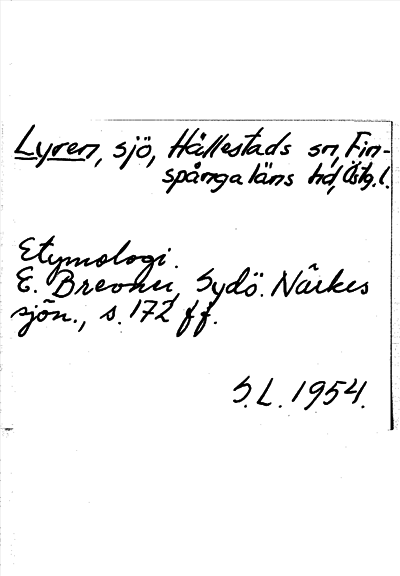 Lyren, sjö, Hällestads sn, Fin-
spånga läns hd, Östg. l.
Etymologi.
E. Brevner, Sydö. Närkes
sjön., s. 172 ff.
S.L. 1954.